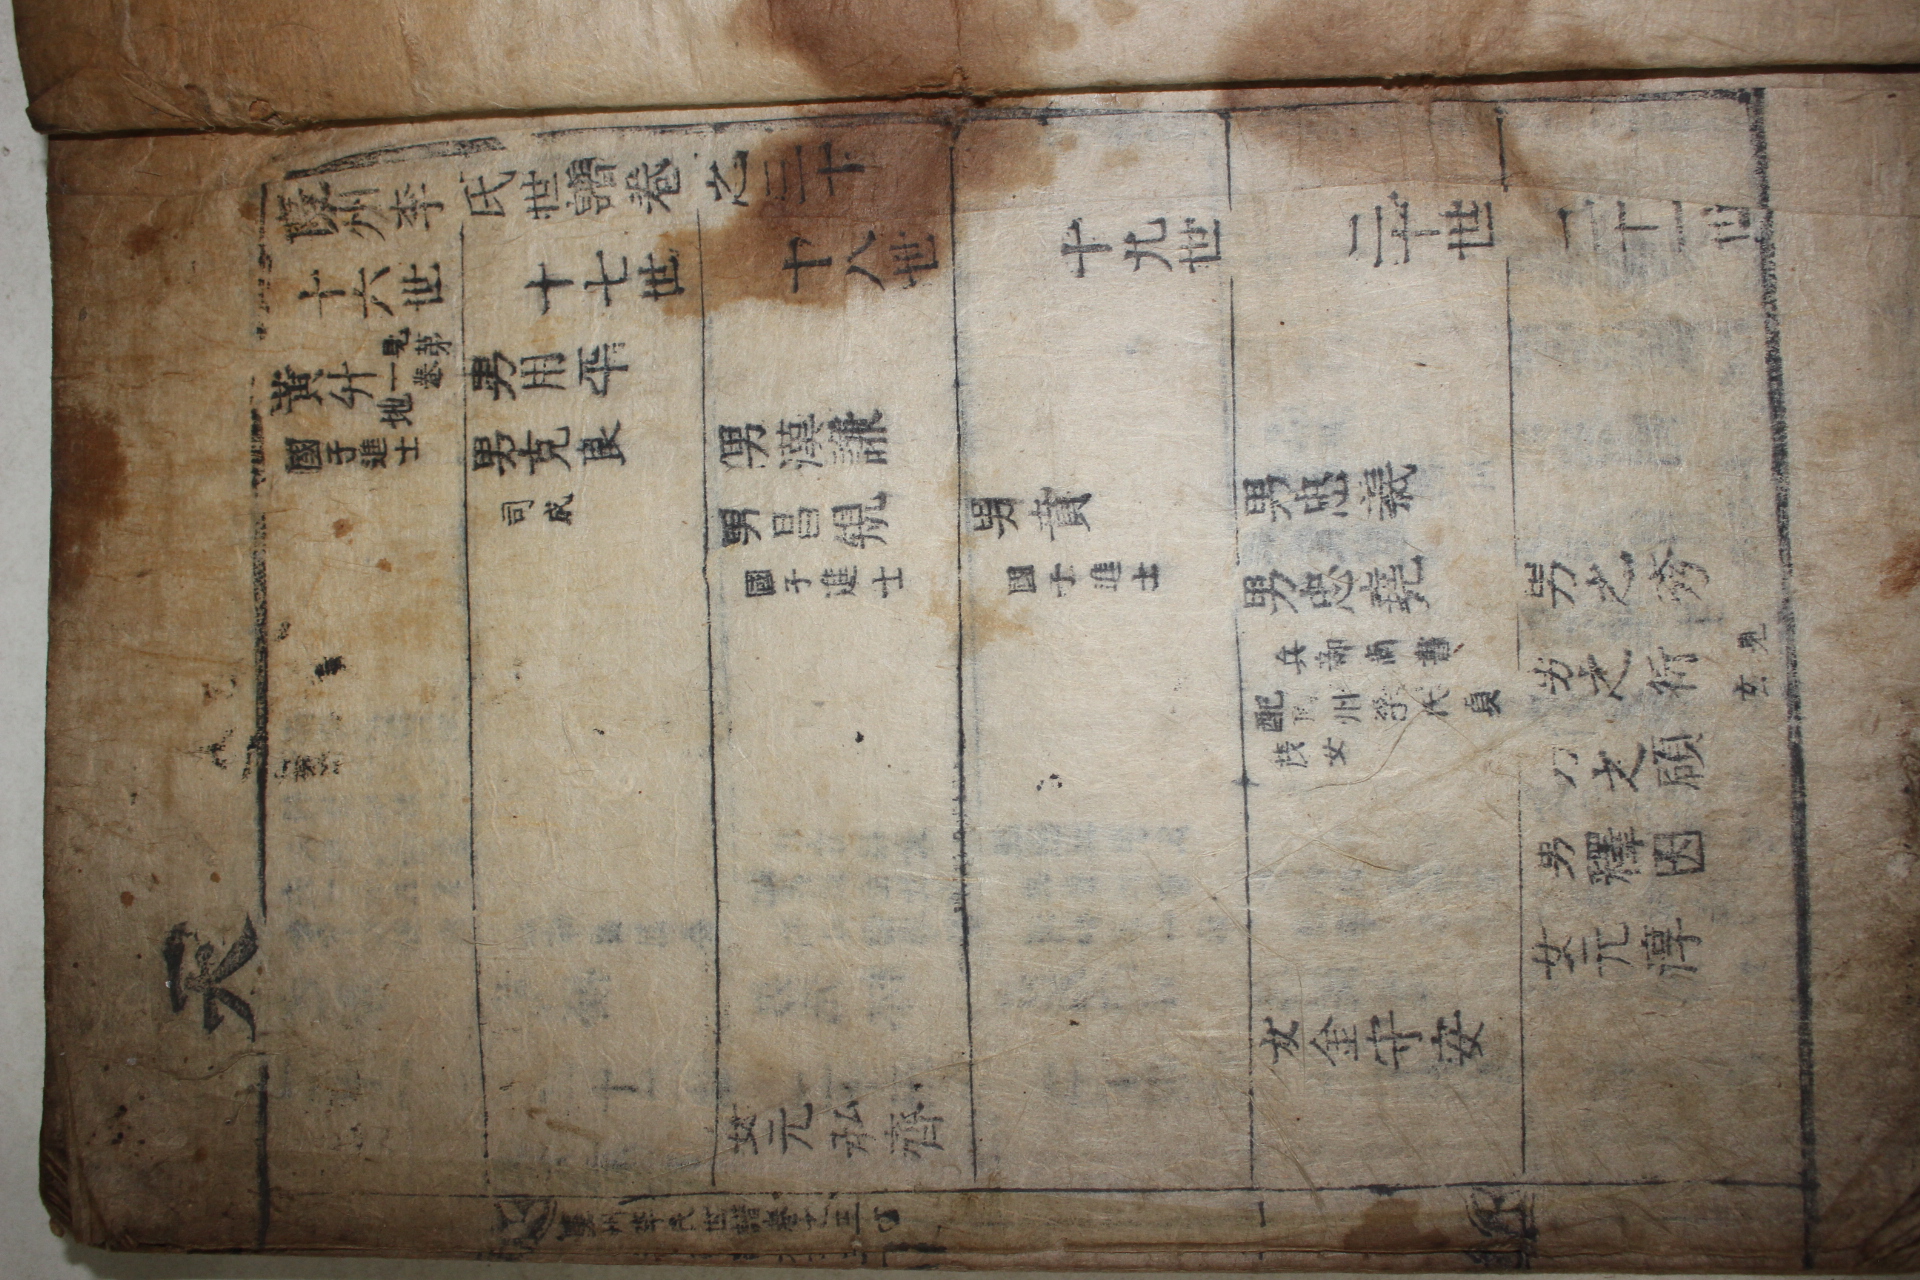 慶州李氏世譜卷之三十
十六世
十七世
十八世
十九世
二十世
二十一世
天
黃升
見第
一卷
地
國子進士
男用平
男克良
司成
男漢謙
男昌規
國子進士
女元弘齊
男賁
國子進士
男忠義
男忠堯
兵部尚書
配 州李氏貞
茂女
女金守安
男之秀
男之衍
見
玄
男之顧
男釋因
女元淳
慶州李氏世譜卷之三十
一